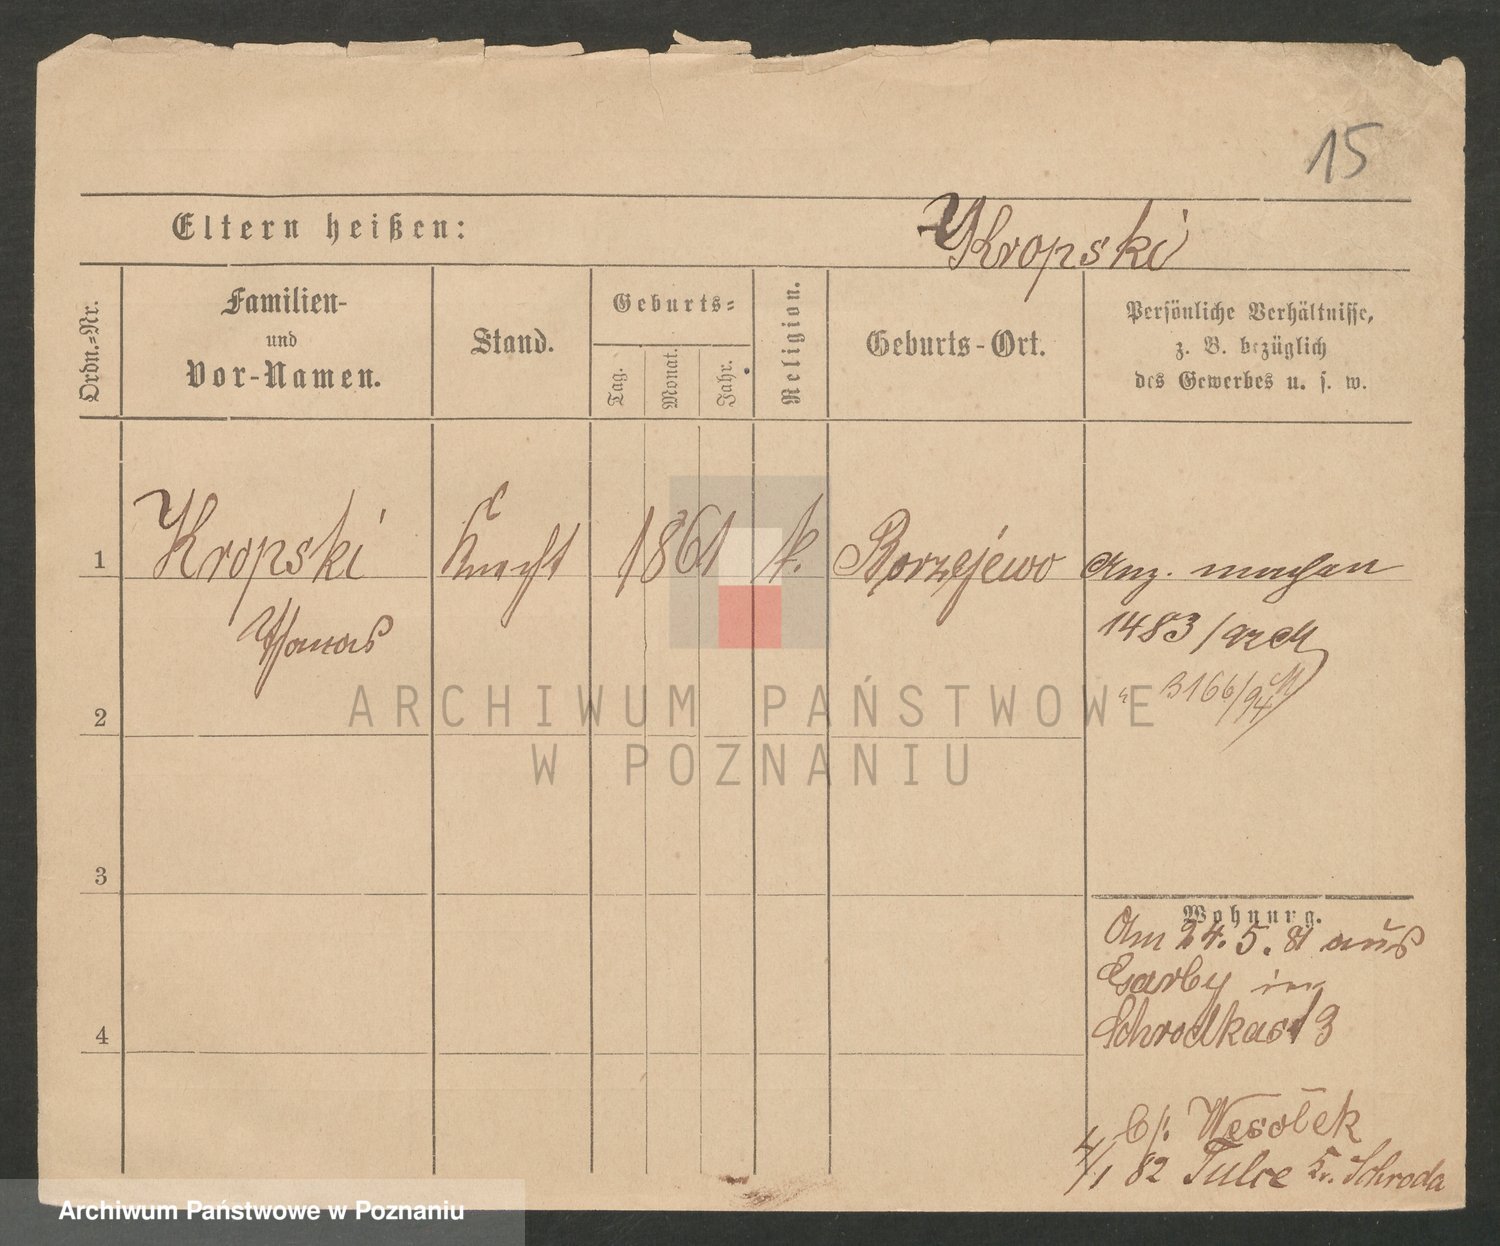 15
Eltern heißen:
Kropski
Ordn.=Nr.
Familien-
und
Vor-Namen.
Stand.
Geburts=
Tag.
Monat.
Jahr.
Religion.
Geburts-Ort.
Persönliche Verhältnisse,
z. B. bezüglich
des Gewerbes u. s. w.
1
Kropski
Knecht
1861
k.
Borzejewo
Anz. machen
Thomas
1483/
3166/94
2
ARCHIWUM PAŃSTWOWE
W POZNANIU
3
Wohnung.
Am 24. 5. 81 aus
Garby in
Schrodkast 3
4
b/. Wesolek
4/1 82 Tulce Kr. Schroda
Archiwum Państwowe w Poznaniu